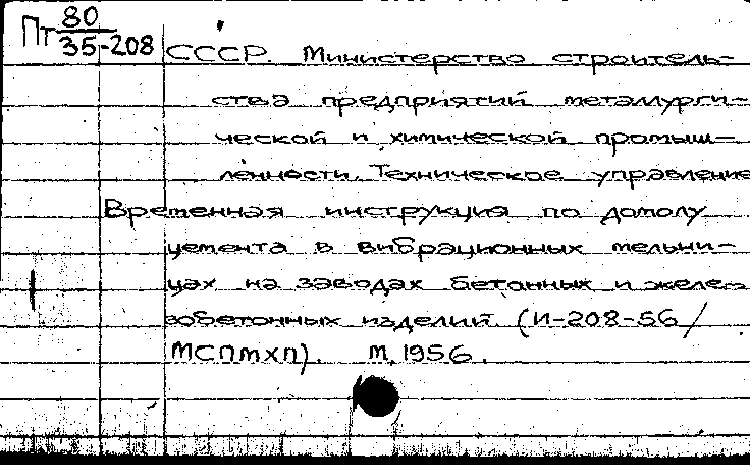 Пт 80
35-208
СССР. Министерство строитель-
ства предприятий металлурги-
ческой и химической промыш-
ленности. Техническое управление
Временная инструкция по домолу
цемента в вибрационных мельни-
цах на заводах бетонных и желе-
зобетонных изделий. (И-208-56/
МСПМХП). М, 1956.